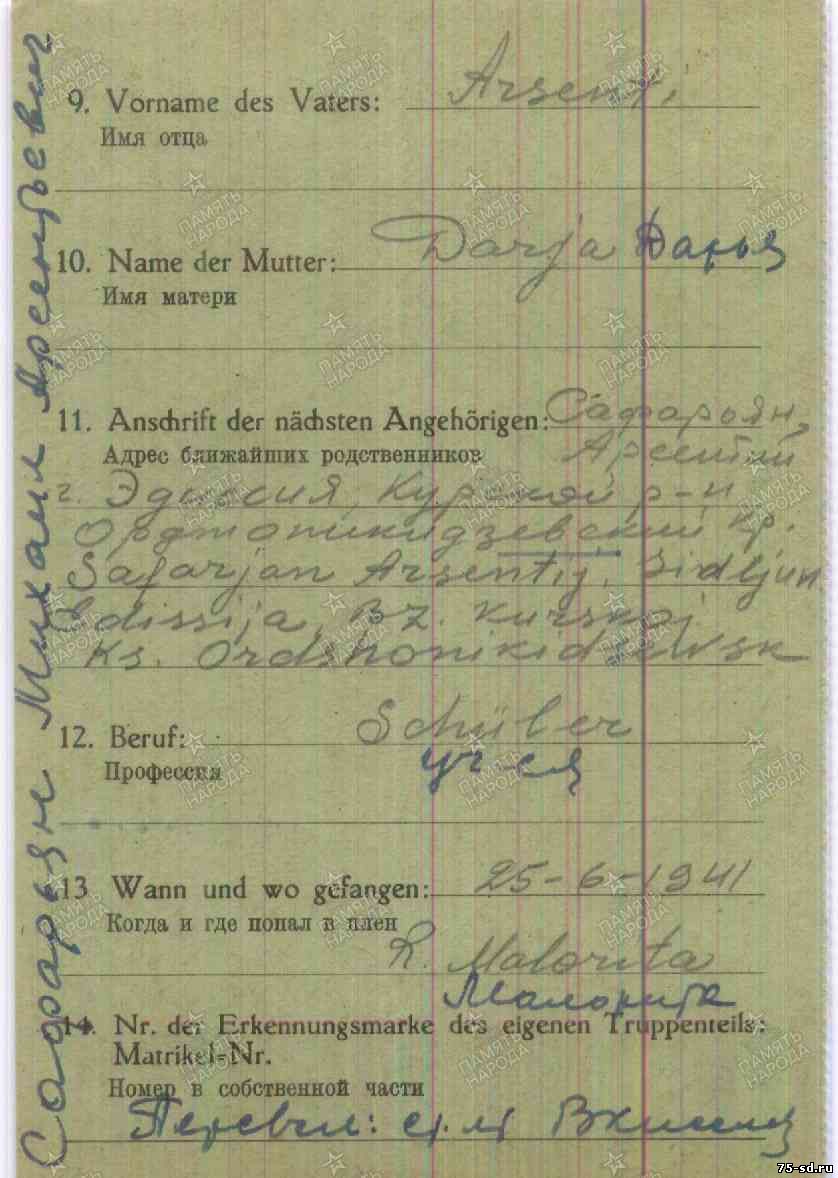 Сафарьян Михаил Арсентьевич
9. Vorname des Vaters: Arsenti
Имя отца
10. Name der Mutter: Darja Дарья
Имя матери
11. Anschrift der nächsten Angehörigen: Сафарьян,
Адрес ближайших родственников Арсентий
г. Эдиссия, Курской р-н
Орджоникидзевский кр.
Safarjan Arsentij, Sidljun
Edissija, Bz. Kurskoj
Ks. Ordshonikidzewsk
12. Beruf: Schüler
Профессия уч-ся
13 Wann und wo gefangen: 25-6-1941
Когда и где попал в плен
R. Malorita
Малорита
14. Nr. der Erkennungsmarke des eigenen Truppenteils:
Matrikel-Nr.
Номер в собственной части
Перевел:
ПАМЯТЬ НАРОДА
75-sd.ru